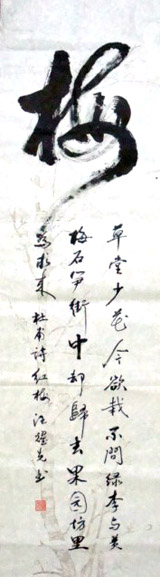 梅
草堂少花今欲栽不问绿李与黄
梅石笋街中却歸去果园坊里
为求来 杜甫诗红梅 书